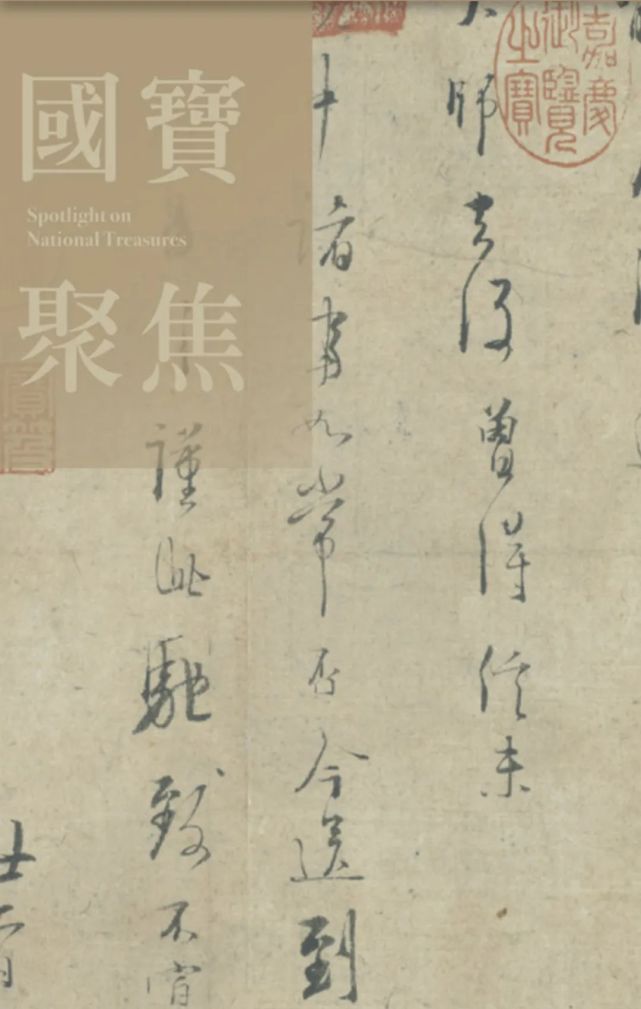 國寶
Spotlight on
National Treasures
聚焦
嘉慶
御覽
之寶
師去後曾得信未
諸事如常否今送到
謹此馳致不宣